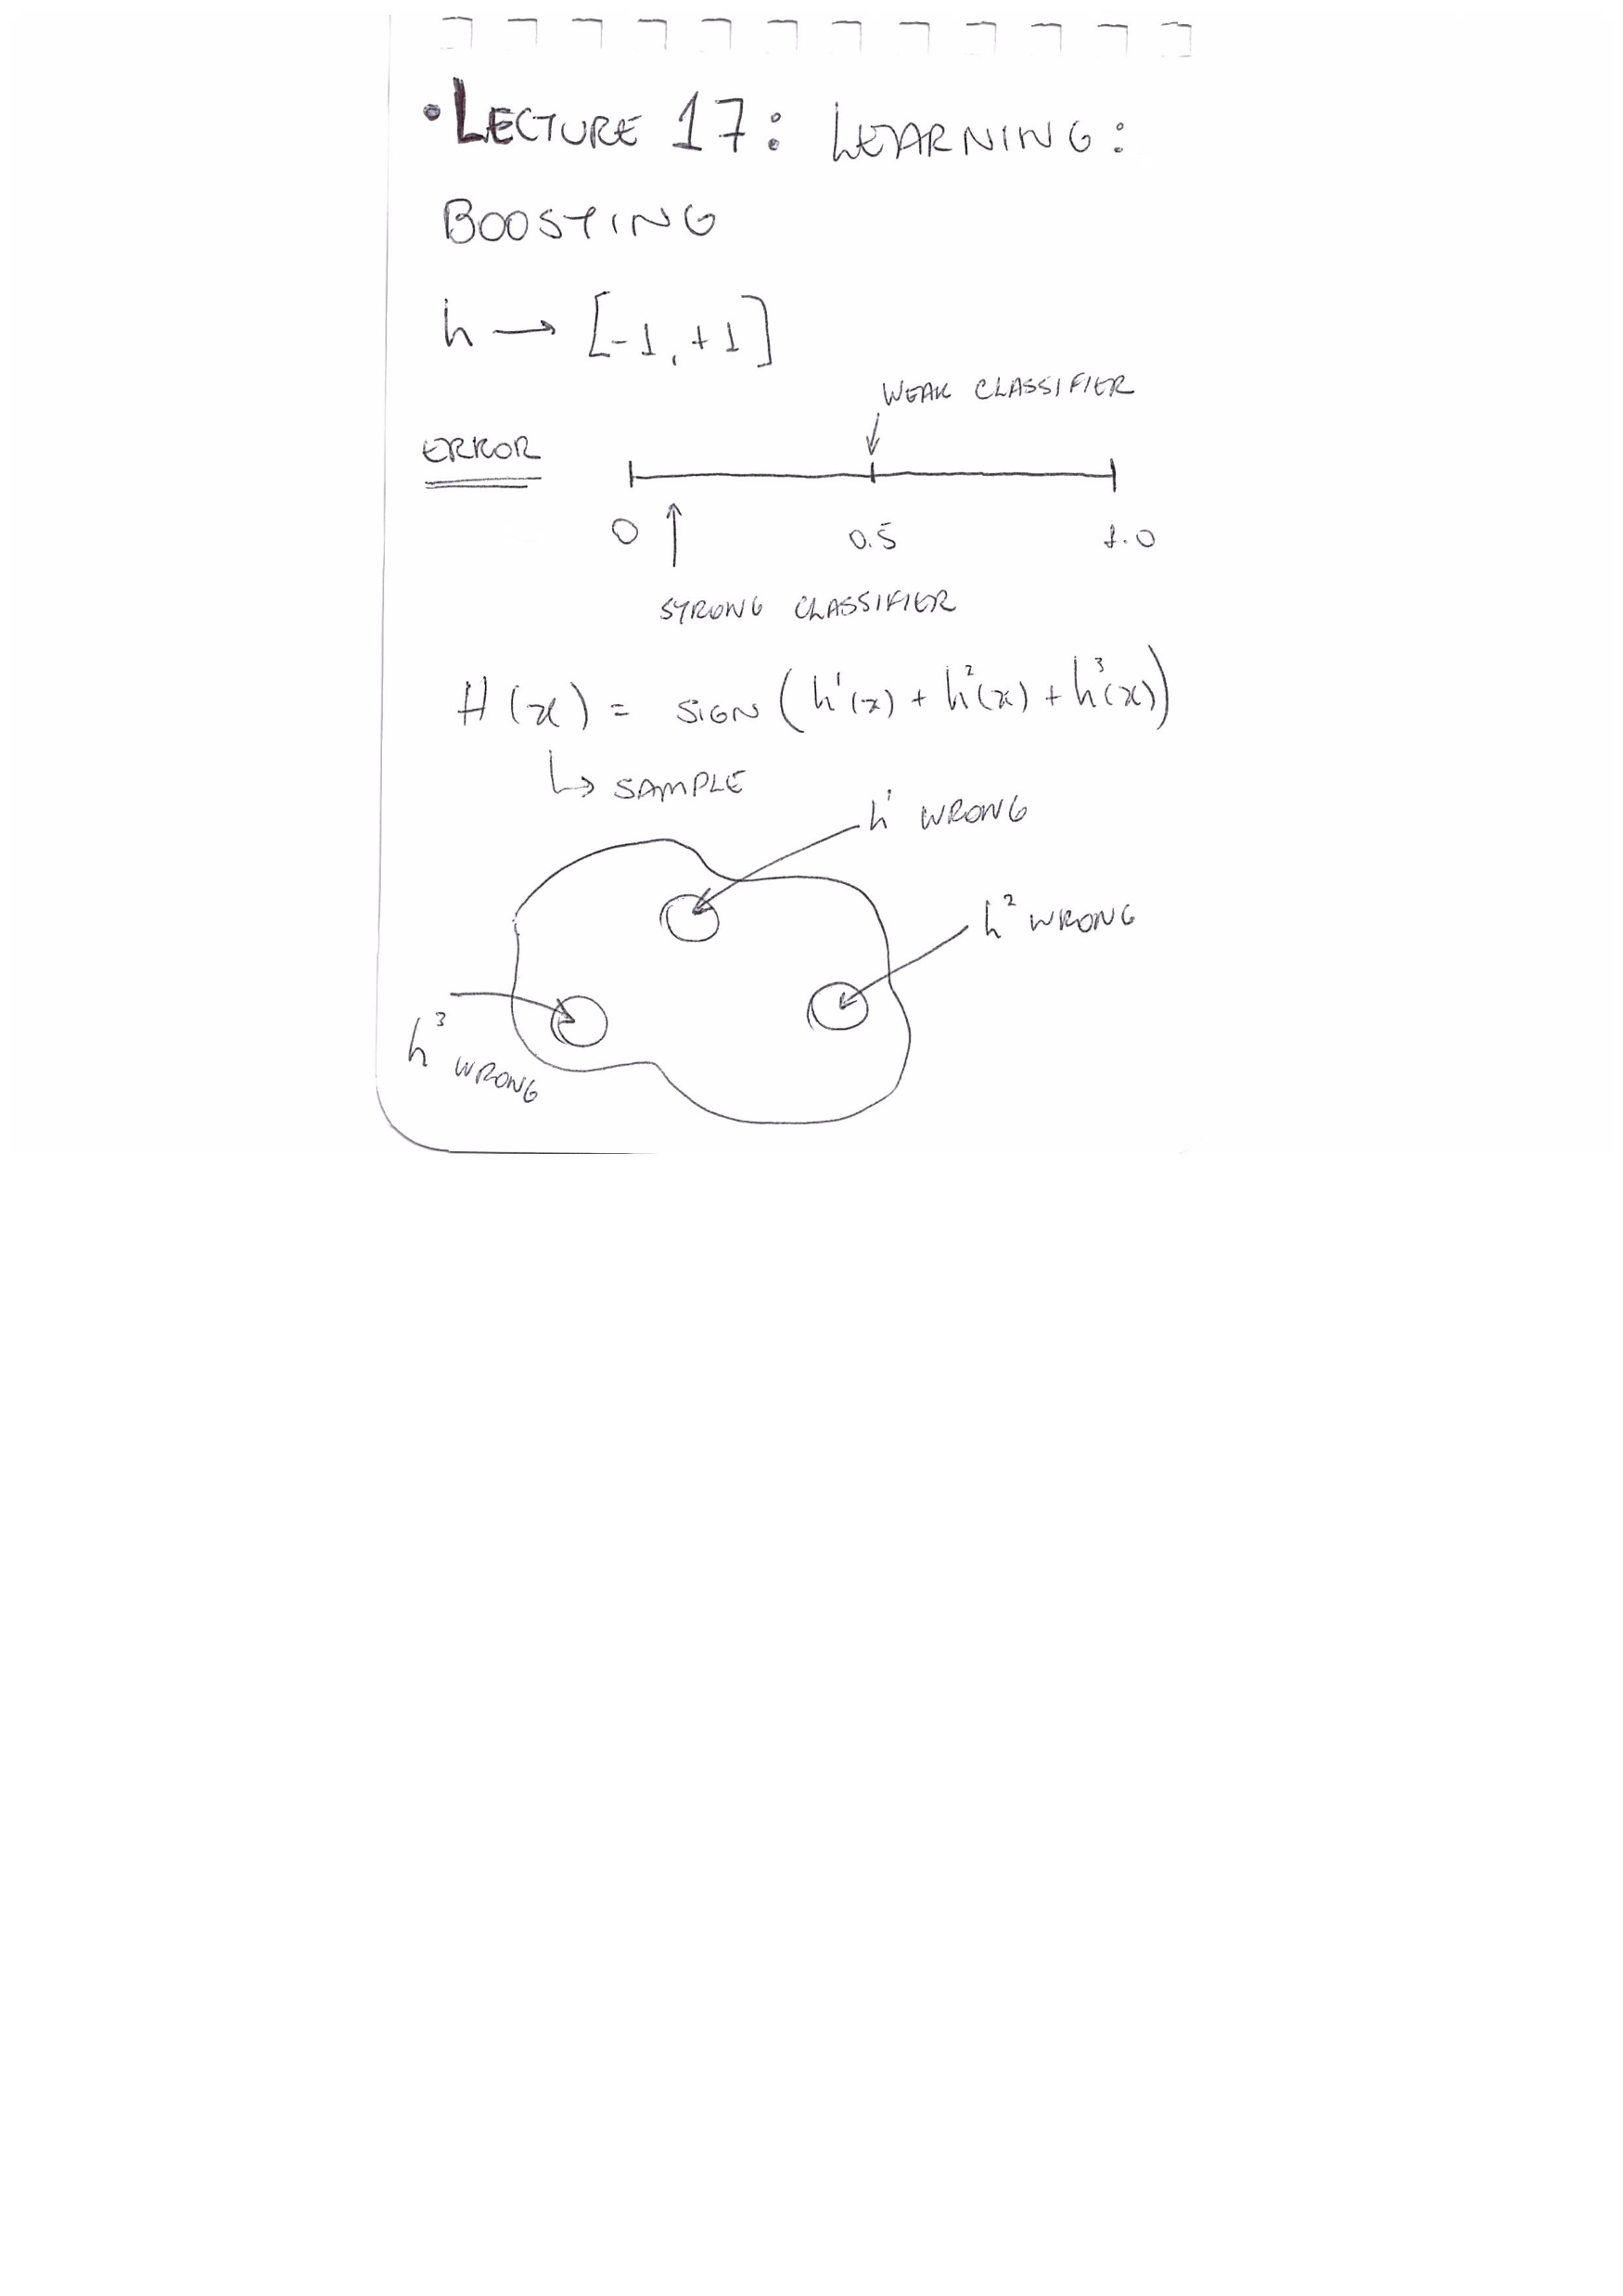 • LECTURE 17: LEARNING:
BOOSTING
h → [-1, +1]
WEAK CLASSIFIER
ERROR
0 0.5 1.0
STRONG CLASSIFIER
H(x) = SIGN (h¹(x) + h²(x) + h³(x))
↳ SAMPLE
h¹ WRONG
h² WRONG
h³ WRONG